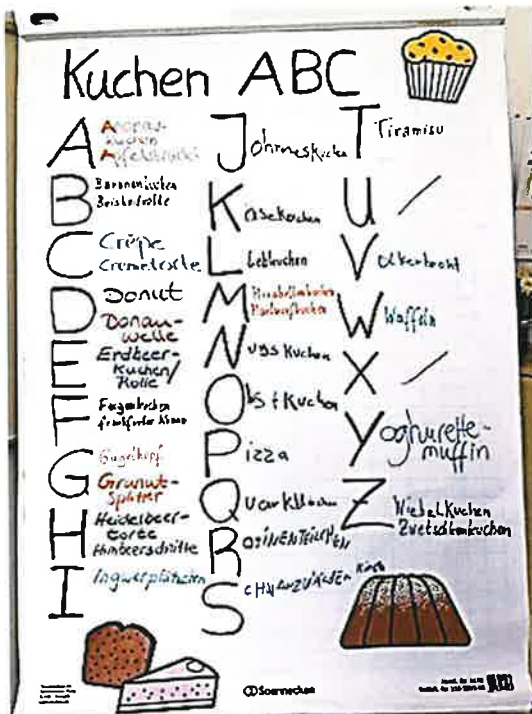 Kuchen ABC
A Ananas-
kuchen
Apfelstrudel
B Bananenkuchen
C Crêpe
Cremetorte
D Donut
Donau-
welle
E Erdbeer-
kuchen/
Rolle
F Feigenkuchen
Frankfurter
G Gugelhopf
Granat-
splitter
H Heidelbeer-
torte
Himbeerschnitte
I Ingwerplätzchen
Johanneskuchen
Käsekuchen
L Lebkuchen
M
Nusskuchen
Obstkuchen
Pizza
Quarkkuchen
ROSINENTEILCHEN
SCHWARZWÄLDER KIRSCH
T Tiramisu
U /
V
W Waffeln
X /
Yoghurette-
muffin
Z
Zwetschkenkuchen
Soennecken